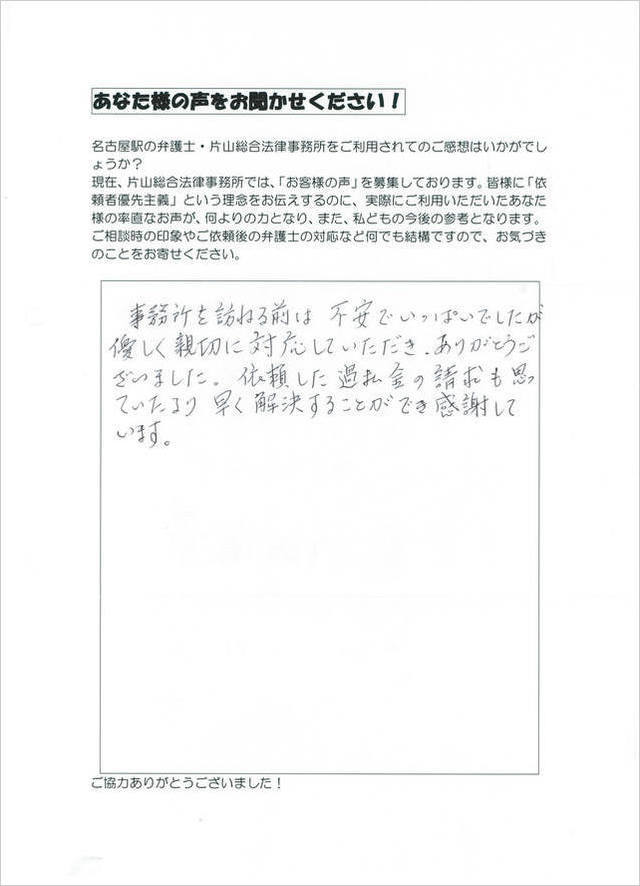 あなた様の声をお聞かせください！
名古屋駅の弁護士・片山総合法律事務所をご利用されてのご感想はいかがでし
ょうか？
現在、片山総合法律事務所では、「お客様の声」を募集しております。皆様に「依
頼者優先主義」という理念をお伝えするのに、実際にご利用いただいたあなた
様の率直なお声が、何よりの力となり、また、私どもの今後の参考となります。
ご相談時の印象やご依頼後の弁護士の対応など何でも結構ですので、お気づき
のことをお寄せください。
事務所を訪ねる前は 不安でいっぱいでしたが
優しく親切に対応していただき、ありがとうご
ざいました。依頼した過払金の請求も思っ
ていたより 早く解決することができ感謝して
います。
ご協力ありがとうございました！